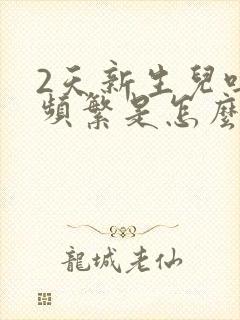 2天新生兒
頻繁是怎麼
龍城老仙